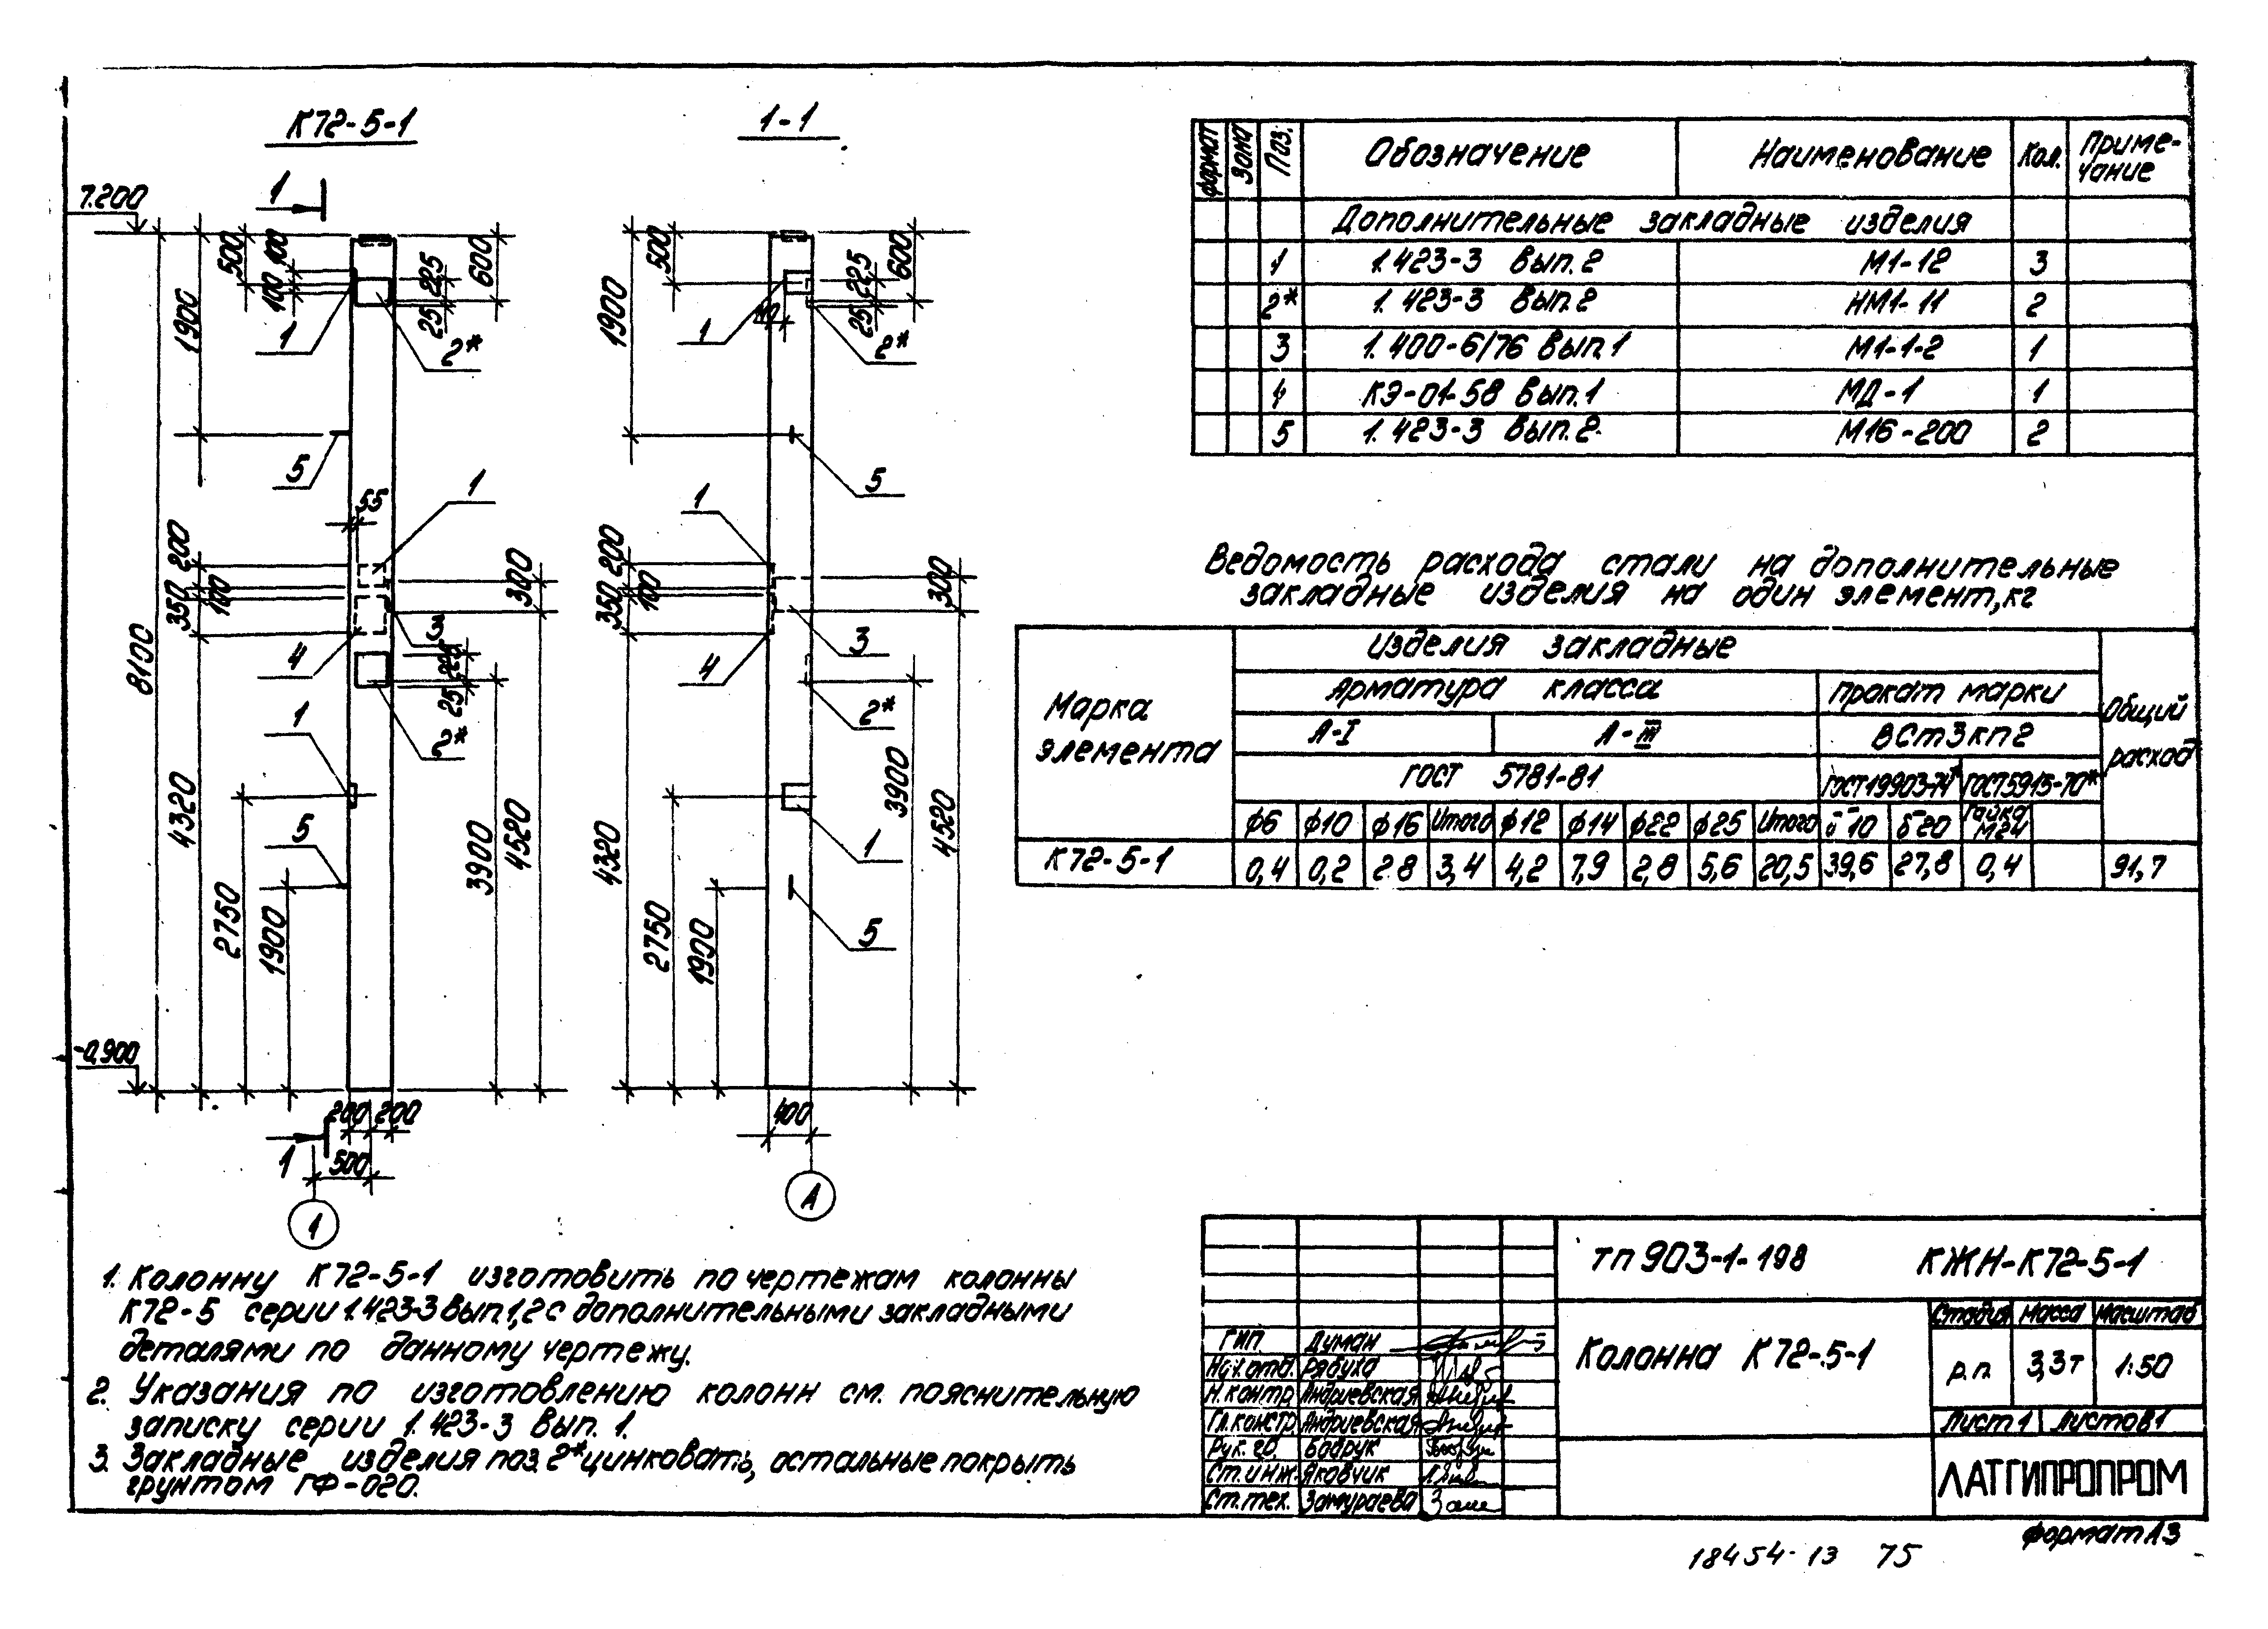 К72-5-1
1-1
1
7.200
-0.900
8100
1900
500
100
100
600
225
25
1
2*
5
55
1
200
350
100
300
4
3
225
25
2*
1
5
4320
2750
1900
3900
4520
200 200
500
1
1
1900
500
600
225
25
110
1
2*
5
1
200
350
100
300
3
4
2*
1
5
4320
2750
1900
3900
4520
400
А
формат Зона Поз. Обозначение Наименование Кол. Приме-
чание
Дополнительные закладные изделия
1 1.423-3 вып. 2 М1-12 3
2* 1.423-3 вып. 2 НМ1-11 2
3 1.400-6/76 вып.1 М1-1-2 1
4 КЭ-01-58 вып.1 МД-1 1
5 1.423-3 вып. 2 М16-200 2
Ведомость расхода стали на дополнительные
закладные изделия на один элемент, кг
Марка
элемента
Изделия закладные
Арматура класса Прокат марки
Общий
расход
А-I А-III ВСт3кп2
ГОСТ 5781-81 ГОСТ19903-74* ГОСТ5915-70*
ф6 ф10 ф16 Итого ф12 ф14 ф22 ф25 Итого δ-10 δ-20 Гайка
М24
К72-5-1 0,4 0,2 2.8 3,4 4,2 7,9 2,8 5,6 20,5 39,6 27,8 0,4 91,7
1. Колонну К72-5-1 изготовить по чертежам колонны
К72-5 серии 1.423-3 вып.1,2 с дополнительными закладными
деталями по данному чертежу.
2. Указания по изготовлению колонн см. пояснительную
записку серии 1.423-3 вып. 1.
3. Закладные изделия поз. 2* цинковать, остальные покрыть
грунтом ГФ-020.
тп 903-1-198 КЖН-К72-5-1
Колонна К72-5-1
Стадия Масса Масштаб
р.п. 3,3т 1:50
Лист 1 Листов 1
ЛАТГИПРОПРОМ
ГИП. Думан
Нач.отд. Рябуха
Н.контр. Андриевская
Гл.констр. Андриевская
Рук. гр. Бабрук
Ст.инж. Яковчик
Ст.тех. Замураева
формат А3
18454-13 75